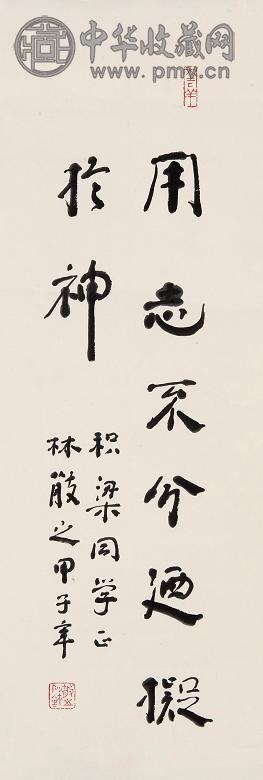 中华收藏网
用志不分廼擬
於神
积梁同学正
林散之甲子年